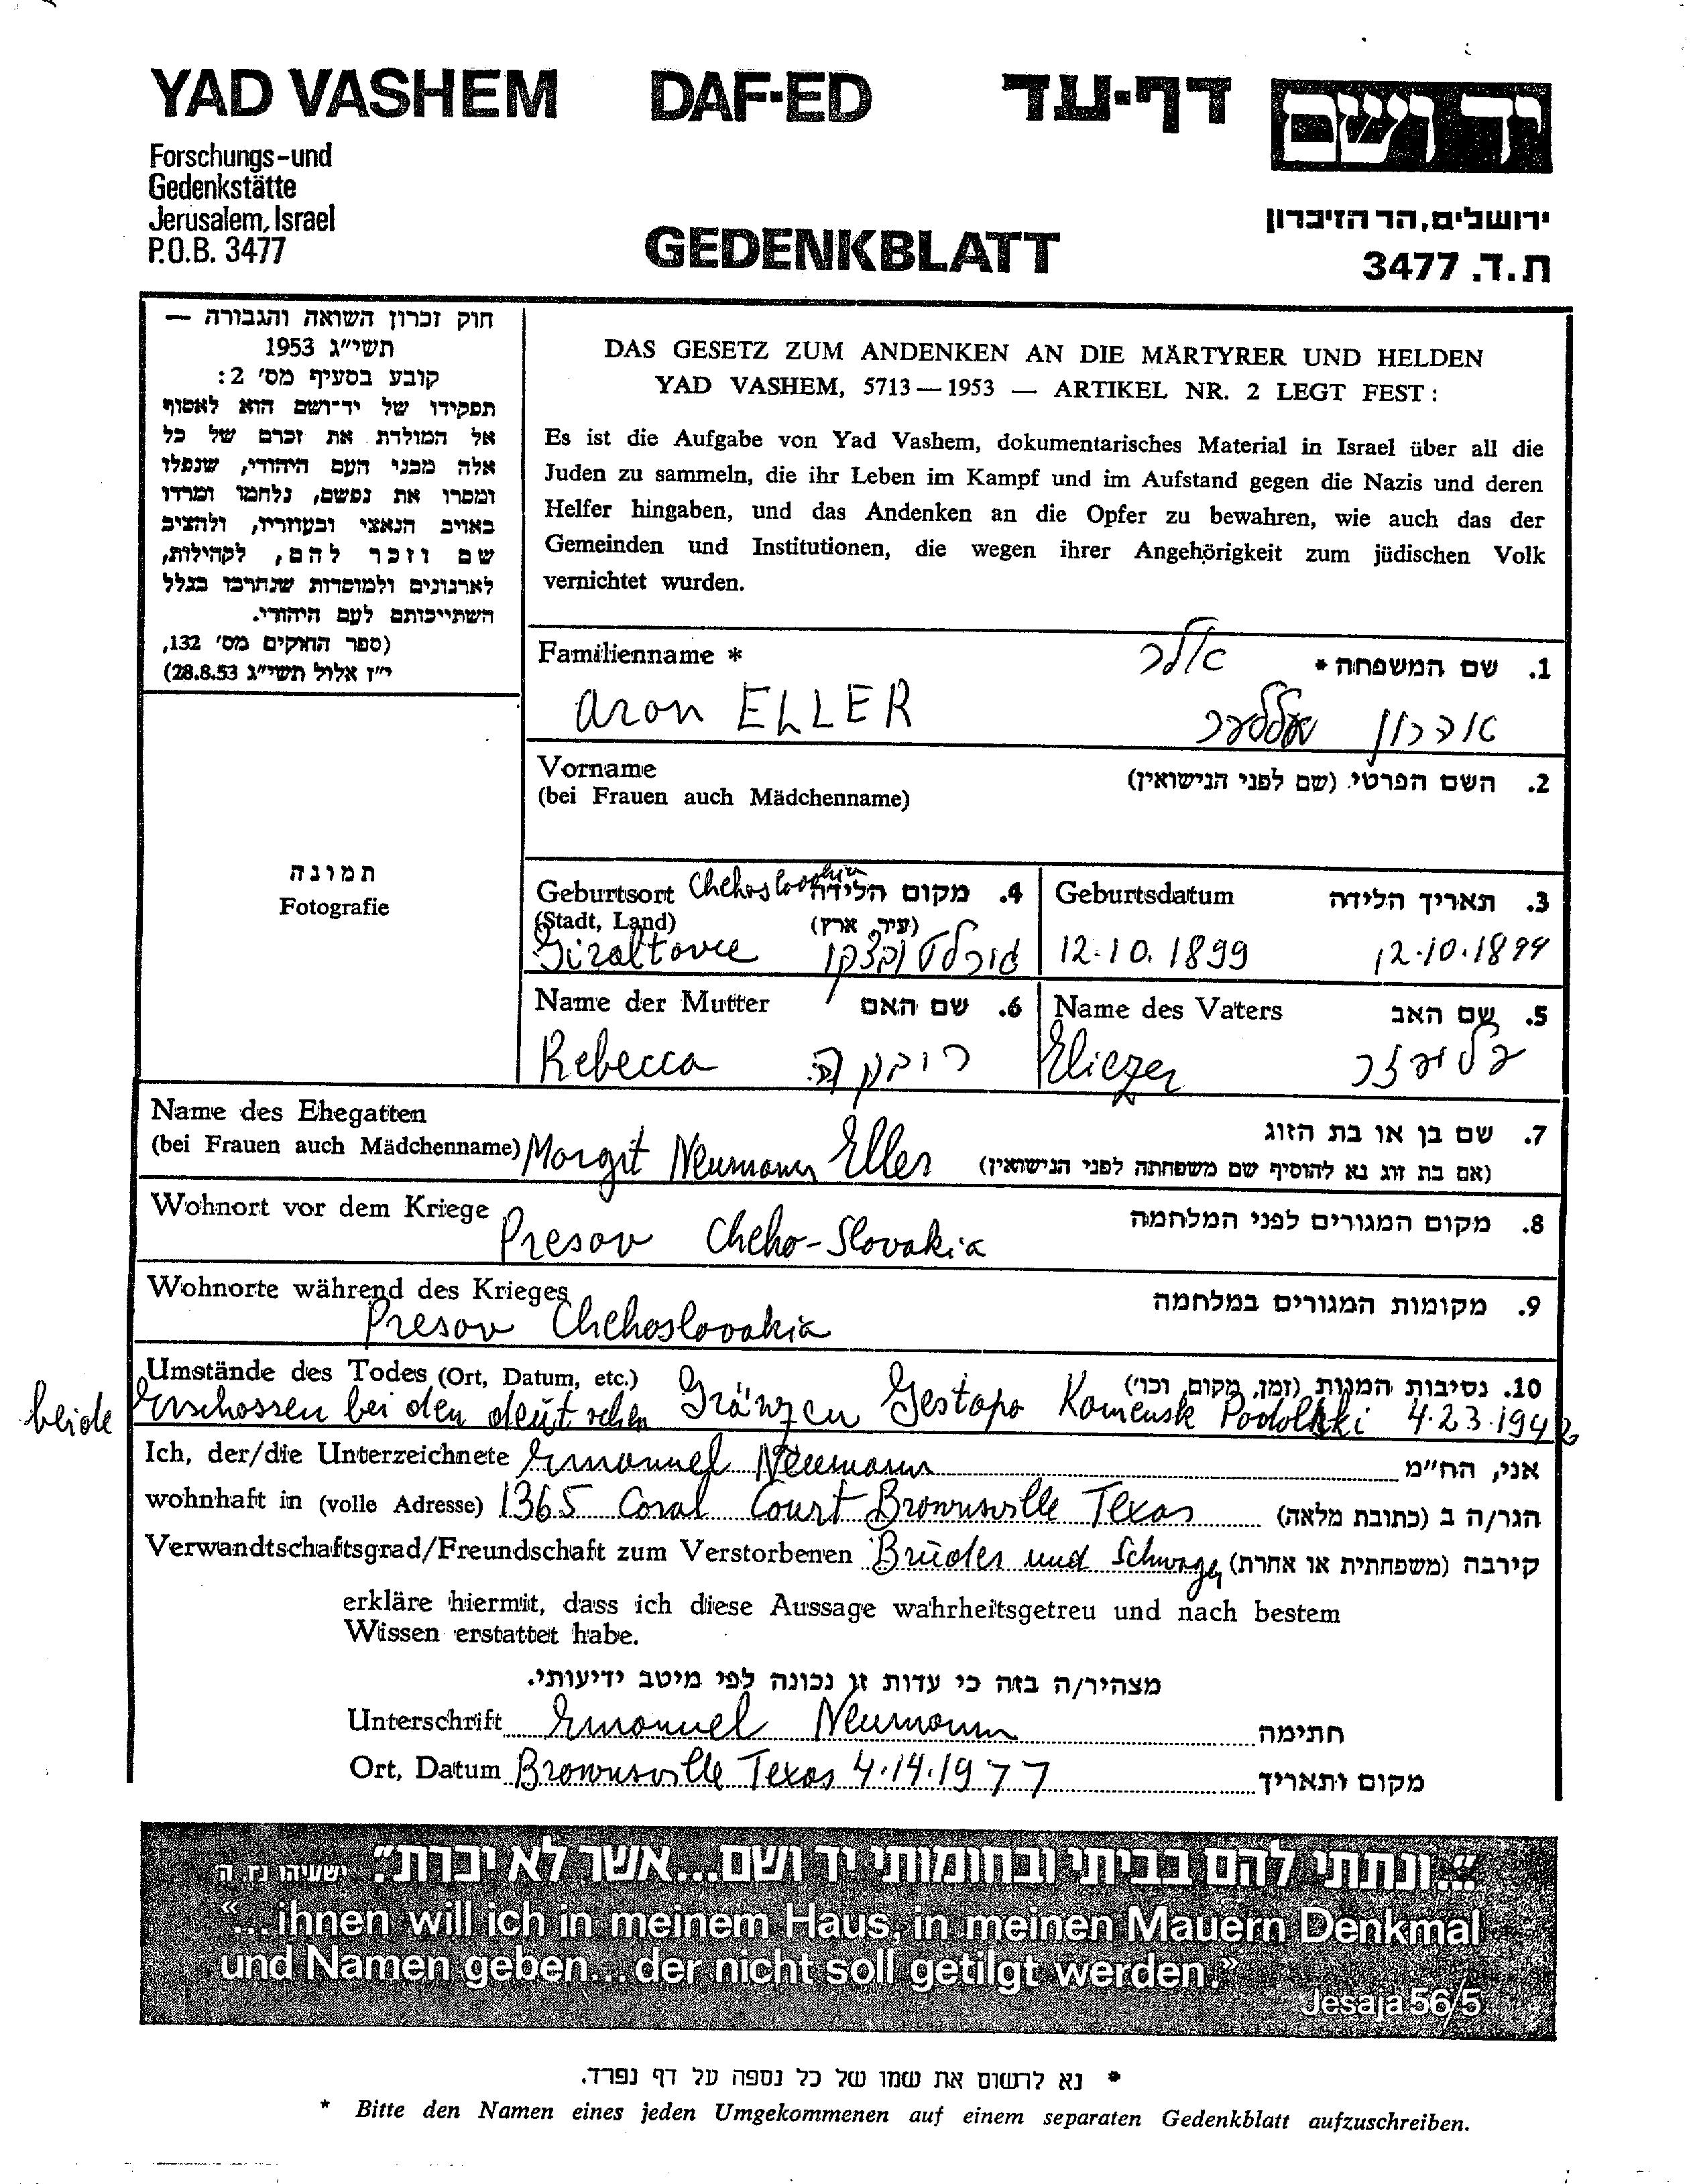 YAD VASHEM DAF-ED דף-עד יד ושם
Forschungs-und
Gedenkstätte
Jerusalem, Israel
P.O.B. 3477
GEDENKBLATT
ירושלים, הר הזיכרון
ת.ד. 3477
חוק זכרון השואה והגבורה —
תשי״ג 1953
קובע בסעיף מס׳ 2:
תפקידו של יד־ושם הוא לאסוף
אל המולדת את זכרם של כל
אלה מבני העם היהודי, שנפלו
ומסרו את נפשם, נלחמו ומרדו
באויב הנאצי ובעוזריו, ולהציב
שם וזכר להם, לקהילות,
לארגונים ולמוסדות שנחרבו בגלל
השתייכותם לעם היהודי.
(ספר החוקים מס׳ 132,
י״ז אלול תשי״ג 28.8.53)
DAS GESETZ ZUM ANDENKEN AN DIE MÄRTYRER UND HELDEN
YAD VASHEM, 5713 — 1953 — ARTIKEL NR. 2 LEGT FEST :
Es ist die Aufgabe von Yad Vashem, dokumentarisches Material in Israel über all die
Juden zu sammeln, die ihr Leben im Kampf und im Aufstand gegen die Nazis und deren
Helfer hingaben, und das Andenken an die Opfer zu bewahren, wie auch das der
Gemeinden und Institutionen, die wegen ihrer Angehörigkeit zum jüdischen Volk
vernichtet wurden.
Familienname * אלר 1. שם המשפחה *
Aron ELLER אהרון
Vorname 2. השם הפרטי (שם לפני הנישואין)
(bei Frauen auch Mädchenname)
תמונה
Fotografie
Geburtsort Chehoslovakia 4. מקום הלידה
(Stadt, Land) (עיר, ארץ)
Giraltovce
Geburtsdatum 3. תאריך הלידה
12.10.1899 12.10.1899
Name der Mutter 6. שם האם
Rebecca רובקה
Name des Vaters 5. שם האב
Eliezer
Name des Ehegatten 7. שם בן או בת הזוג
(bei Frauen auch Mädchenname) Morgit Neumann Eller (אם בת זוג נא להוסיף שם משפחתה לפני הנישואין)
Wohnort vor dem Kriege 8. מקום המגורים לפני המלחמה
Presov Cheho-Slovakia
Wohnorte während des Krieges 9. מקומות המגורים במלחמה
Presov Chehoslovakia
Umstände des Todes (Ort, Datum, etc.) 10. נסיבות המות (זמן, מקום, וכו׳)
beide Erschossen bei den deutschen Gränzen Gestapo Komensk Podolski 4.23.1942
Ich, der/die Unterzeichnete Emanuel Neumann אני, הח״מ
wohnhaft in (volle Adresse) 1365 Coral Court Brownsville Texas הגר/ה ב (כתובת מלאה)
Verwandtschaftsgrad/Freundschaft zum Verstorbenen Brüder und Schwager קירבה (משפחתית או אחרת)
erkläre hiermit, dass ich diese Aussage wahrheitsgetreu und nach bestem
Wissen erstattet habe.
מצהיר/ה בזה כי עדות זו נכונה לפי מיטב ידיעותי.
Unterschrift Emanuel Neumann חתימה
Ort, Datum Brownsville Texas 4.14.1977 מקום ותאריך
“...ונתתי להם בביתי ובחומותי יד ושם...אשר לא יכרת.״ ישעיהו נו, ה
“...ihnen will ich in meinem Haus, in meinen Mauern Denkmal
und Namen geben...der nicht soll getilgt werden.”
Jesaja 56/5
* נא לרשום את שמו של כל נספה על דף נפרד.
* Bitte den Namen eines jeden Umgekommenen auf einem separaten Gedenkblatt aufzuschreiben.